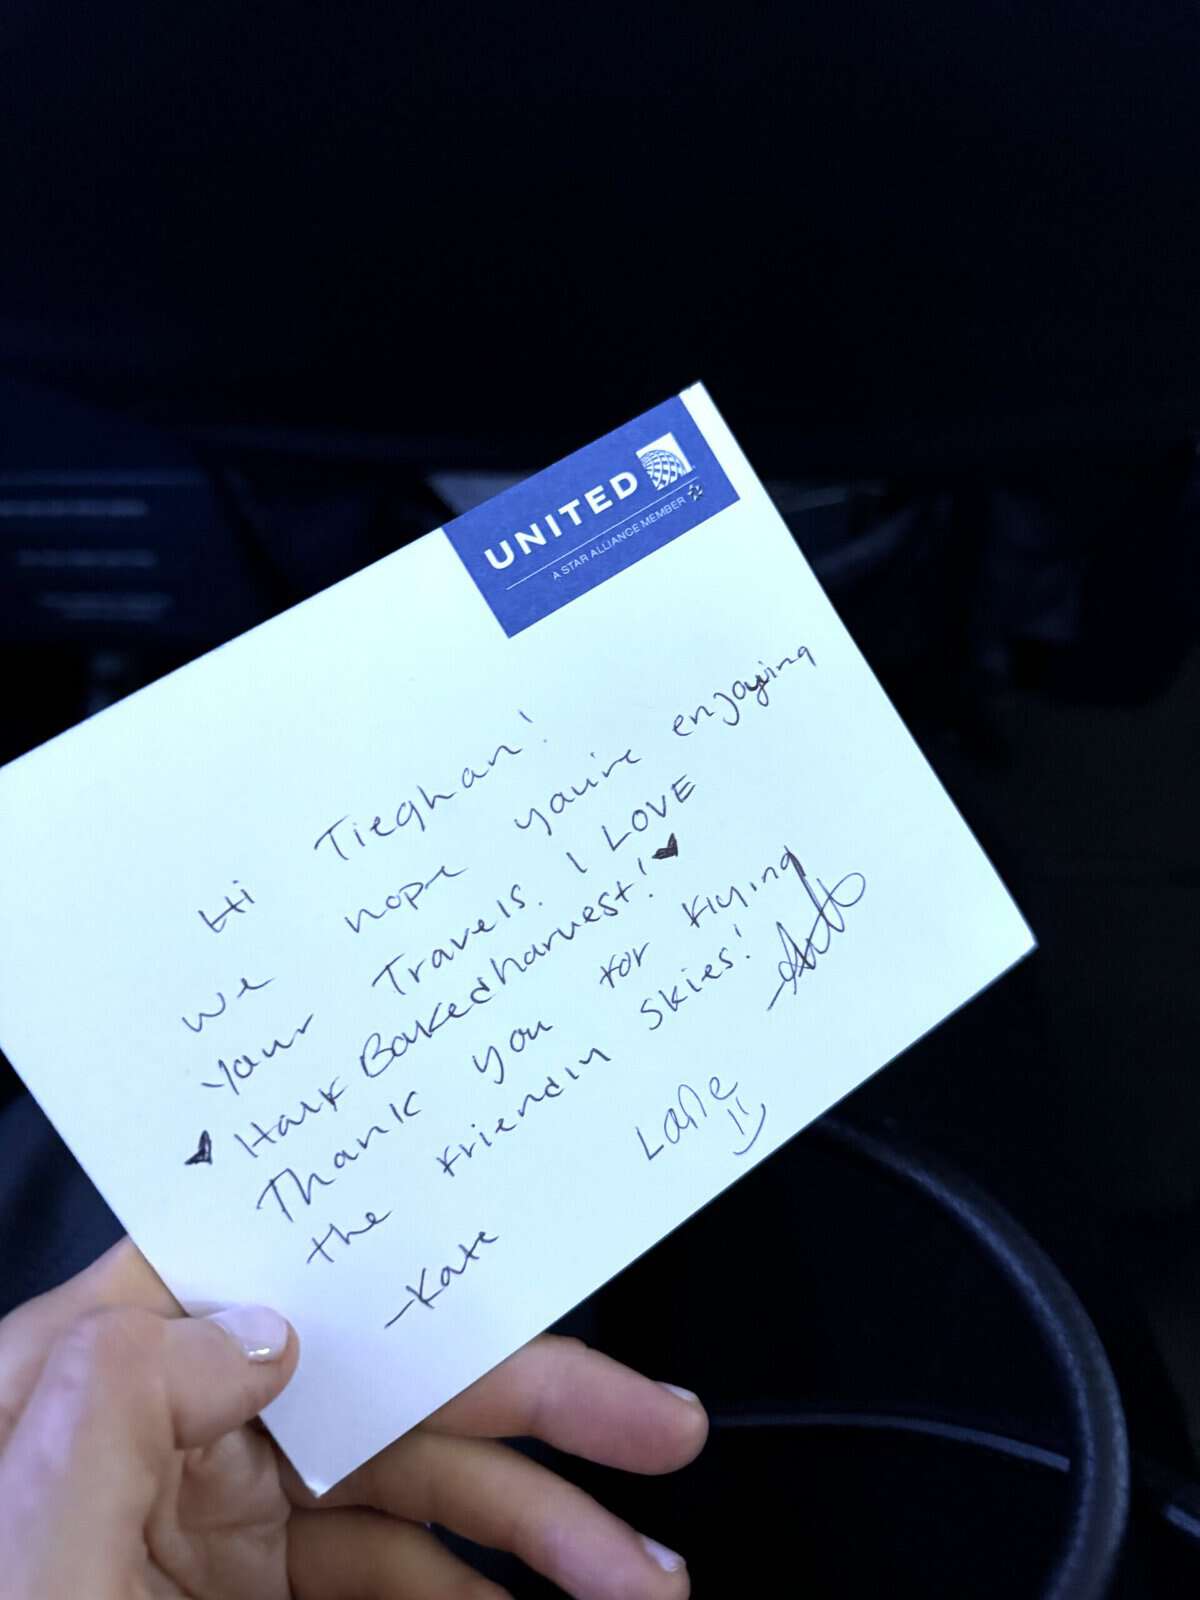 UNITED
A STAR ALLIANCE MEMBER
Hi Tieghan!
We hope you're enjoying
Your Travels. I LOVE
♥ Half Bakedharvest! ♥
Thank you for flying
the friendly skies!
-Kate